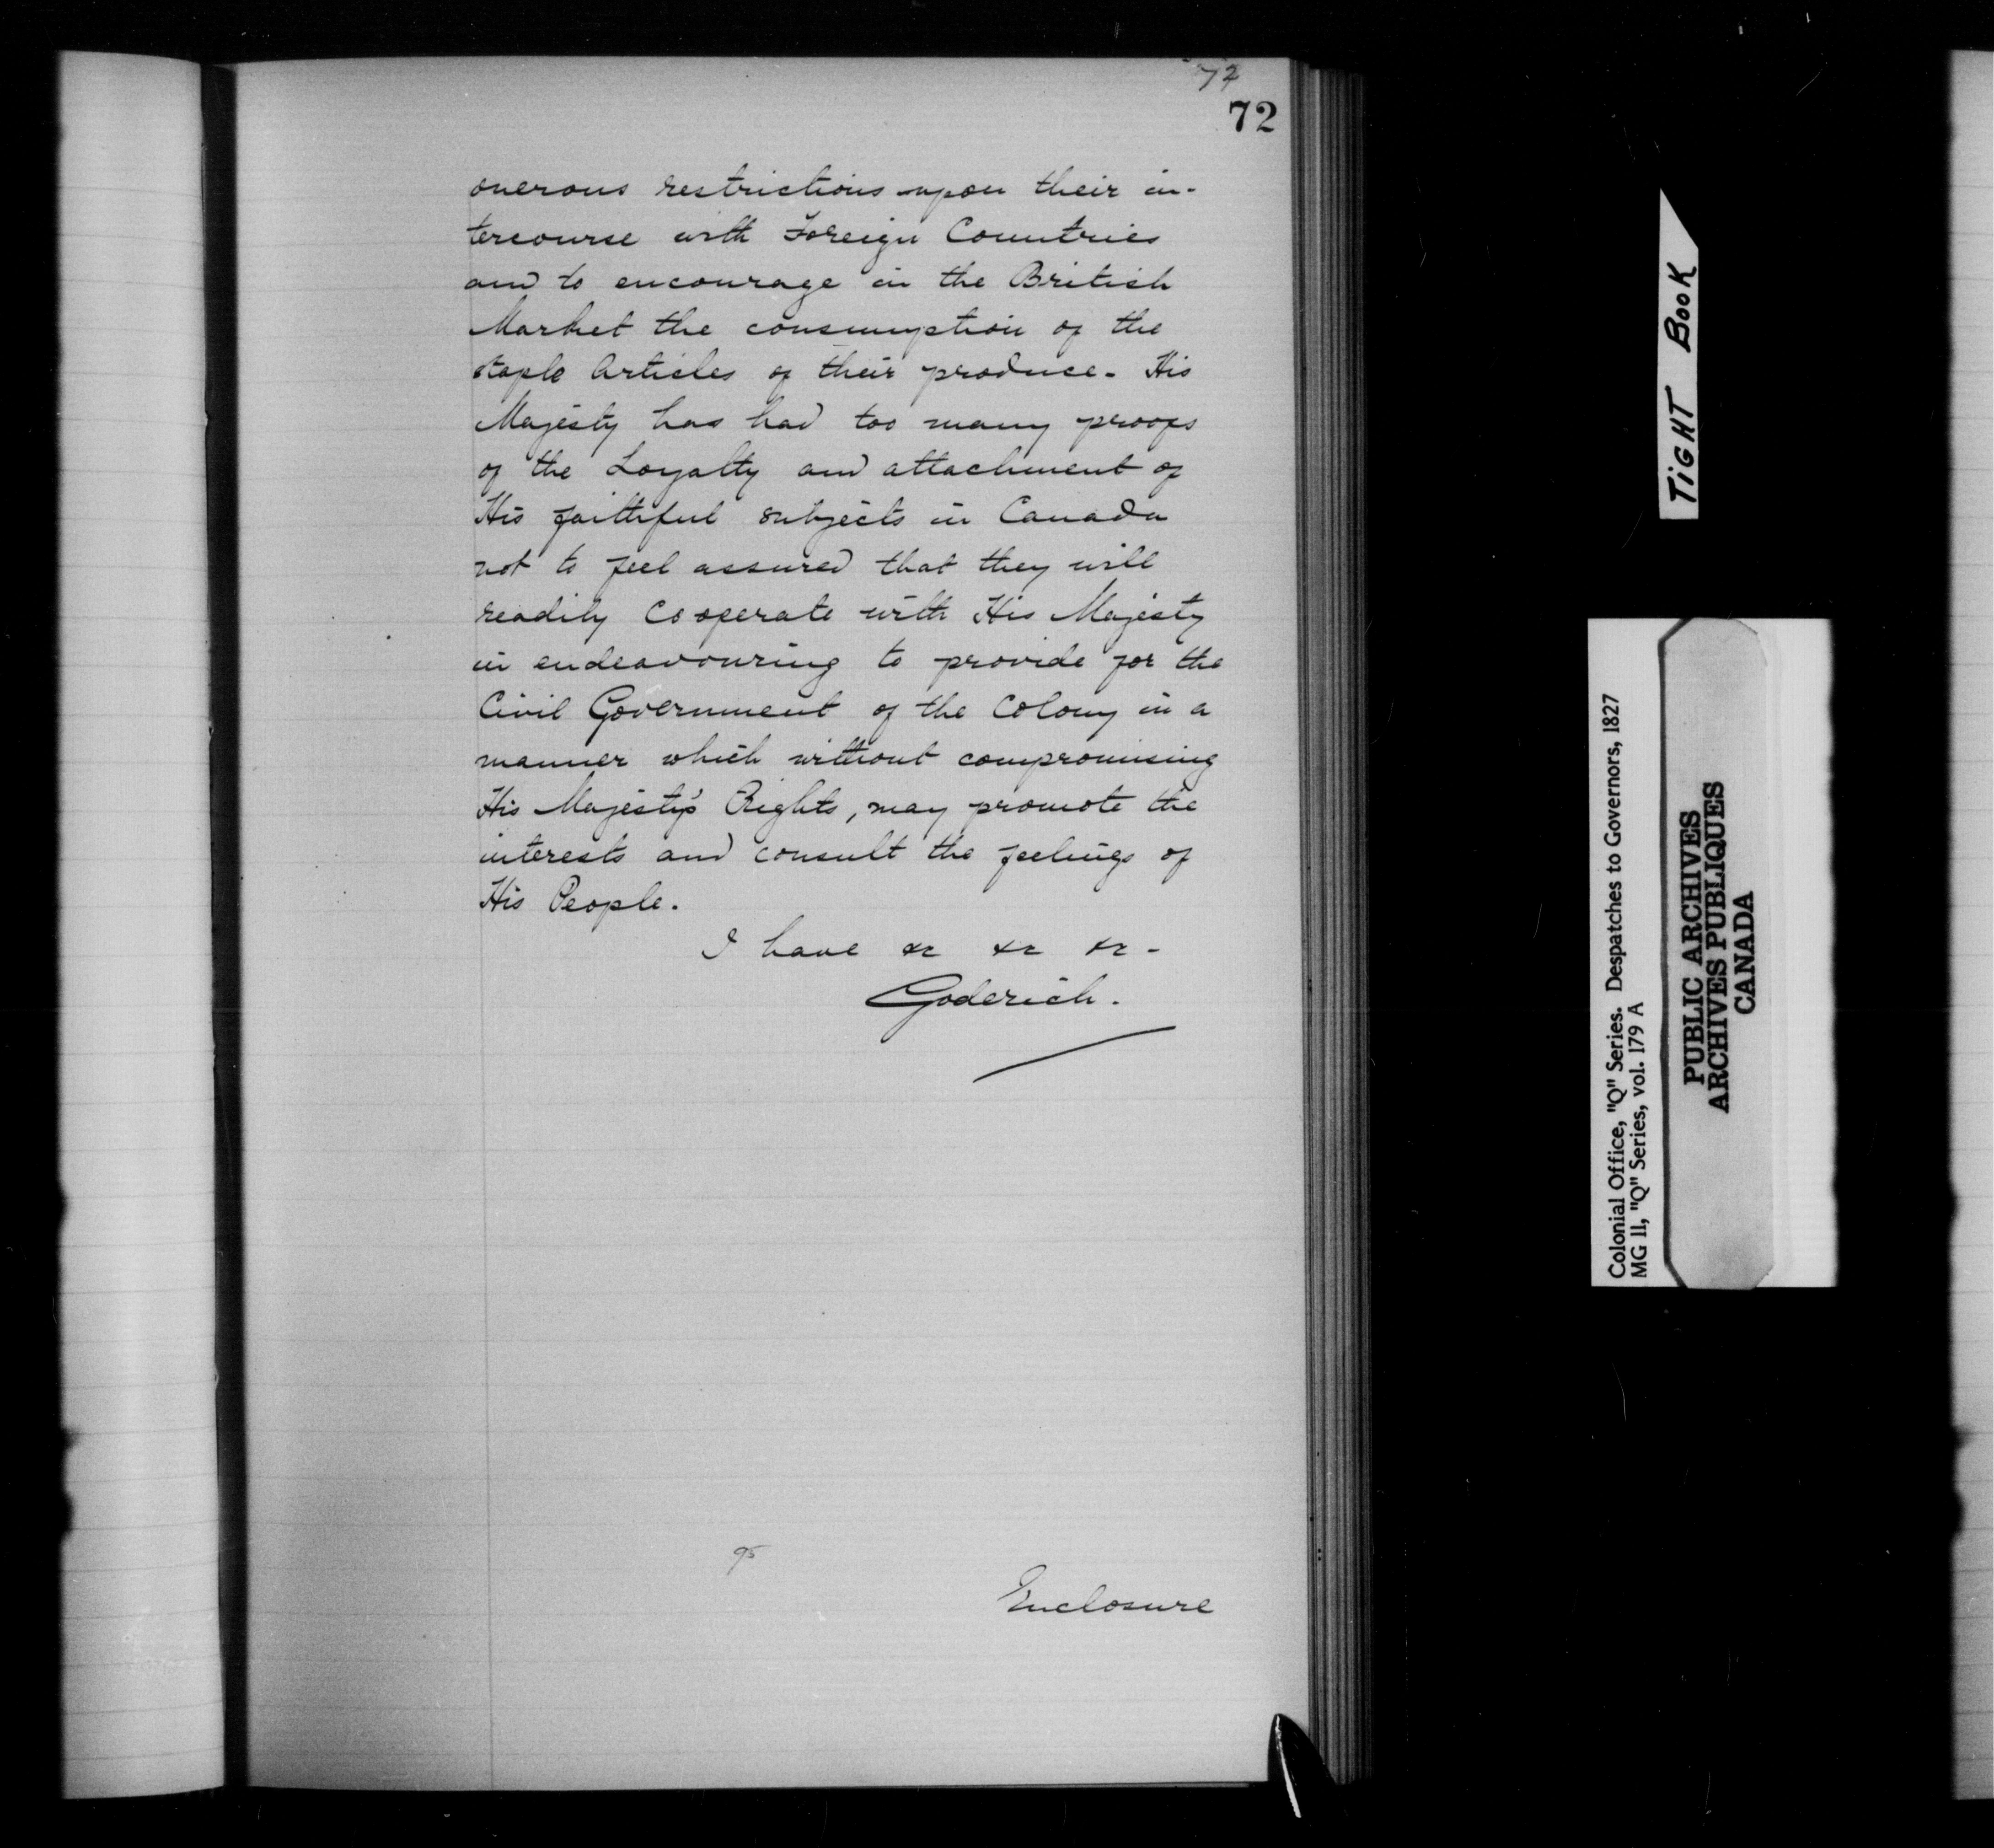 72
72
onerous restrictions upon their in-
tercourse with Foreign Countries
and to encourage in the British
Market the consumption of the
staple Articles of their produce. His
Majesty has had too many proofs
of the Loyalty and attachment of
His faithful subjects in Canada
not to feel assured that they will
readily Cooperate with His Majesty
in endeavouring to provide for the
Civil Government of the Colony in a
manner which without compromising
His Majesty's Rights, may promote the
interests and consult the feelings of
His People.
I have &c &c &c -
Goderich.
95
Enclosure
TIGHT BOOK
Colonial Office, "Q" Series. Despatches to Governors, 1827
MG 11, "Q" Series, vol. 179 A
PUBLIC ARCHIVES
ARCHIVES PUBLIQUES
CANADA